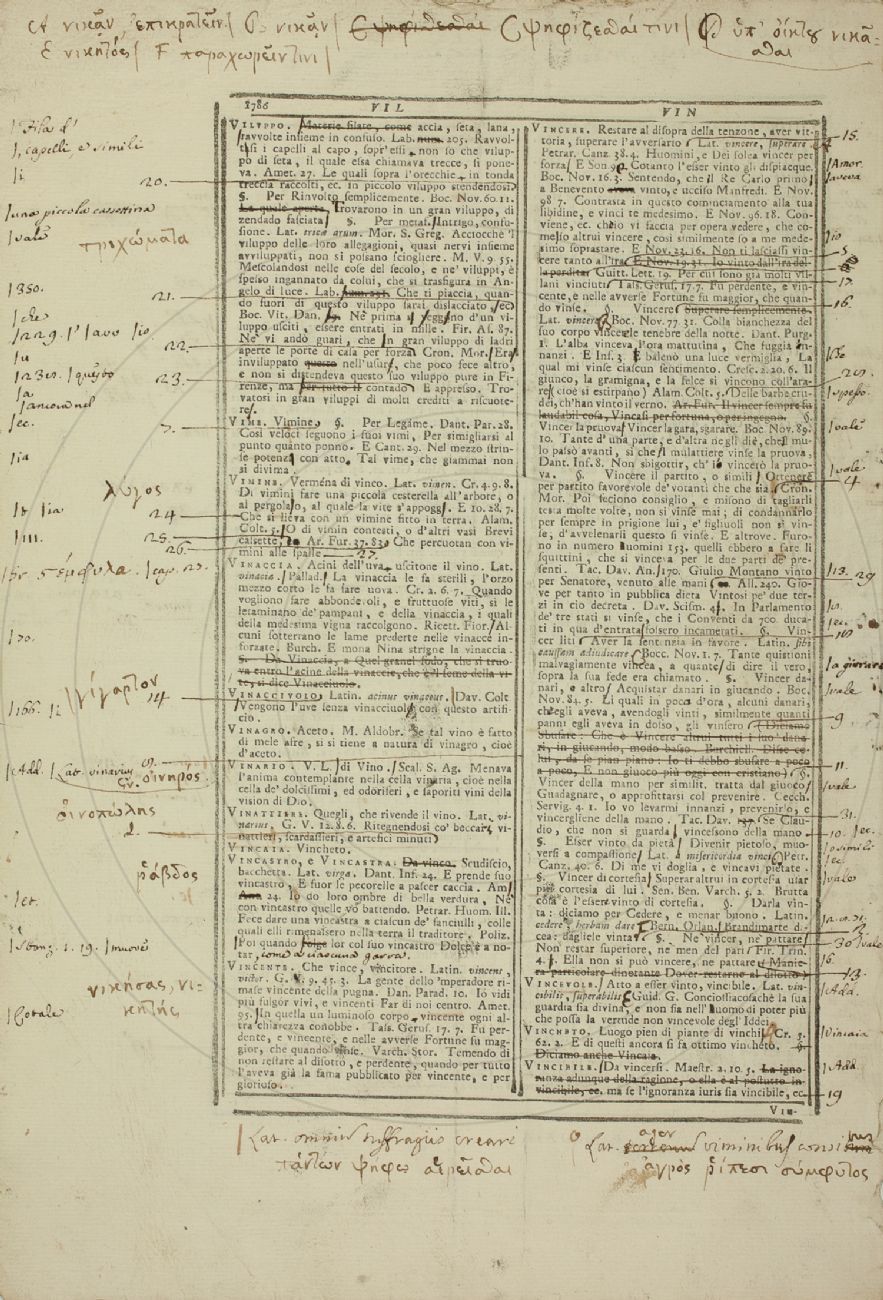 A νικᾶν, ἐπικρατεῖν B νικᾶν C ψηφίζεσθαι τινι D ὑπ' οἴκτου νικᾶ-
σθαι
E νικητός F παραχωρεῖν τινι
1786 VIL VIN
VILUPPO. Materie filate, come accia, seta, lana,
ravvolte insieme in confuso. Lab. 203. Ravvol-
i capelli al capo, sopr'essi non so che vilup-
po di seta, il quale essa chiamava trecce, si pone-
va. Amet. 27. Le quali sopra l'orecchie in tonda
treccia raccolti, ec. in piccolo viluppo stendendosi
§. Per Rinvolto semplicemente. Boc. Nov. 60. 11.
Trovarono in un gran viluppo, di
zendado fasciata §. Per metaf. Intrigo, confu-
sione. Lat. tricæ arum. Mor. S. Greg. Acciocchè 'l
viluppo delle loro allegagioni, quasi nervi insieme
avviluppati, non si possano sciogliere. M. V. 9. 55.
Mescolandosi nelle cose del secolo, e ne' viluppi, è
spesso ingannato da colui, che si trasfigura in An-
gelo di luce. Lab. Che ti piaccia, quan-
do fuori di questo viluppo sarai dislacciato
Boc. Vit. Dan. Nè prima si veggono d'un vi-
luppo usciti, essere entrati in mille. Fir. As. 87.
Nè vi andò guari, che in gran viluppo di ladri
aperte le porte di casa per forza Cron. Mor. Era
inviluppato nell'usure, che poco fece altro,
e non si distendeva questo suo viluppo pure in Fi-
renze, ma per tutto il contado E appresso. Tro-
vatosi in gran viluppi di molti crediti a riscuote-
re
VIMA. Vimine §. Per Legáme. Dant. Par. 28.
Così veloci seguono i suoi vimi, Per simigliarsi al
punto quanto ponno. E Cant. 29. Nel mezzo strin-
se potenza con atto Tal vime, che giammai non
si divima.
VIMINE. Verména di vinco. Lat. vimen. Cr. 4. 9. 8.
Di vimini fare una piccola cesterella all'arbore, o
al pergolato, al quale la vite s'appoggi. E 10. 28. 7.
Che si lieva con un vimine fitto in terra. Alam.
Colt. 5. O di vimin contesti, o d'altri vasi Brevi
casette, Ar. Fur. 37. 83. Che percuotan con vi-
mini alle spalle
VINACCIA. Acini dell'uva uscitone il vino. Lat.
vinacia. Pallad. La vinaccia le fa sterili, l'orzo
mezzo corto le fa fare uova. Cr. 2. 6. 7. Quando
vogliono fare abbondevoli, e fruttuose viti, si le
letaminano de' pampani, e della vinaccia, i quali
della medesima vigna raccolgono. Ricett. Fior. Al-
cuni sotterrano le lame prederte nelle vinacce in-
forzate. Burch. E mona Nina strigne la vinaccia.
§. Da Vinaccia, a Quel granel sodo, che si truo-
va entro l'acine delle vinacce, che è il seme della vi-
te, si dice Vinacciuolo.
VINACCIUOLO. Latin. acinus vinaceus. Dav. Colt.
Vengono l'uve senza vinacciuoli con questo artifi-
cio.
VINAGRO. Aceto. M. Aldobr. Se tal vino è fatto
di mele afre, sì si tiene a natura di vinagro, cioè
d'aceto.
VINARIO. V. L. di Vino. Scal. S. Ag. Menava
l'anima contemplante nella cella vinaria, cioè nella
cella de' dolcissimi, ed odoriferi, e saporiti vini della
vision di Dio.
VINATTIERE. Quegli, che rivende il vino. Lat. vi-
narius. G. V. 12. 8. 6. Ritegnendosi co' beccari, vi-
nattieri, scardassieri, e artefici minuti
VINCAIA. Vincheto.
VINCASTRO, e VINCASTRA. Da vinco. Scudiscio,
bacchetta. Lat. virga. Dant. Inf. 24. E prende suo
vincastro, E fuor le pecorelle a pascer caccia. Am.
24. Io do loro ombre di bella verdura, Nè
con vincastro quelle vo battendo. Petrar. Huom. Ill.
Fece dare una vincastra a ciascun de' fanciulli, colle
quali elli rimenassero nella terra il traditore. Poliz.
Poi quando lor col suo vincastro Dolce è a no-
tar, come a ciascuna garra.
VINCENTE. Che vince, vincitore. Latin. vincens,
victor. G. V. 9. 45. 3. La gente dello 'mperadore ri-
mase vincente della pugna. Dan. Parad. 10. Io vidi
più fulgor vivi, e vincenti Far di noi centro. Amet.
95. In quella un luminoso corpo vincente ogni al-
tra chiarezza conobbe. Tass. Gerus. 17. 7. Fu per-
dente, e vincente, e nelle avverse Fortune fu mag-
gior, che quando vinse. Varch. Stor. Temendo di
non restare al disotto, e perdente, quando per tutto
l'aveva già la fama pubblicato per vincente, e per
glorioso.
VINCERE. Restare al disopra della tenzone, aver vit-
toria, superare l'avversario Lat. vincere, superare.
Petrar. Canz. 38. 4. Huomini, e Dei solea vincer per
forza E Son. 9. Cotanto l'esser vinto gli dispiacque.
Boc. Nov. 16. 3. Sentendo, che il Re Carlo primo
a Benevento vinto, e ucciso Manfredi. E Nov.
98. 7. Contrasta in questo cominciamento alla tua
libidine, e vinci te medesimo. E Nov. 96. 18. Con-
viene, ec. ch'io vi faccia per opera vedere, che co-
me so altrui vincere, così similmente so a me mede-
simo soprastare. E Nov. 23. 16. Non ti lasciassi vin-
cere tanto all'ira E Nov. 19. 31. Io vinto dall'ira del-
la perdita Guitt. Lett. 19. Per cui sono già molti vil-
lani vinciuti Tass. Gerus. 17. 7. Fu perdente, e vin-
cente, e nelle avverse Fortune fu maggior, che quan-
do vinse. §. Vincere Superare semplicemente.
Lat. vincere. Boc. Nov. 77. 31. Colla bianchezza del
suo corpo vincente le tenebre della notte. Dant. Purg.
1. L'alba vinceva l'ora mattutina, Che fuggía in-
nanzi. E Inf. 3. E balenò una luce vermiglia, La
qual mi vinse ciascun sentimento. Cresc. 2. 20. 6. Il
giunco, la gramigna, e la felce si vincono coll'ara-
re (cioè si estirpano) Alam. Colt. 5. Delle barbe cru-
dei, ch'han vinto il verno. Ar. Fur. Il vincer sempre fu
laudabil cosa, Vincasi per fortuna, o per ingegno. §.
Vincer la pruova Vincer la gara, sgarare. Boc. Nov. 89.
10. Tante d'una parte, e d'altra negli diè, che il mu-
lo passò avanti, sì che il mulattiere vinse la pruova,
Dant. Inf. 8. Non sbigottir, ch'io vincerò la pruo-
va. §. Vincere il partito, o simili Ottenere
per partito favorevole de' votanti che che sia Cron.
Mor. Poi feciono consiglio, e misono di tagliarli
testa molte volte, non si vinse mai; di condannarlo
per sempre in prigione lui, e figliuoli non si vin-
se, d'avvelenarli questo si vinse. E altrove. Furo-
no in numero huomini 153. quelli ebbero a fare li
squittini, che si vinceva per le due parti de' pre-
senti. Tac. Dav. An. 170. Giulio Montano vinto
per Senatore, venuto alle mani All. 240. Gio-
ve per tanto in pubblica dieta Vintosi pe' due ter-
zi in ciò decreta. Dav. Scism. 41. In Parlamento
de' tre stati si vinse, che i Conventi da 700. duca-
ti in qua d'entrata fossero incamerati. §. Vin-
cer liti Aver la sentenzia in favore. Latin. sibi
caussam adiudicare. Bocc. Nov. 1. 7. Tante quistioni
malvagiamente vincea, a quante di dire il vero,
sopra la sua fede era chiamato. §. Vincer da-
nari, e altro Acquistar danari in giucando. Boc.
Nov. 84. 5. Li quali in poca d'ora, alcuni danari,
ch'egli aveva, avendogli vinti, similmente quanti
panni egli aveva in dosso, gli vinsero Diciamo
Sbusare: Che è Vincere altrui tutti i suo' dana-
ri, in giucando, modo basso. Burchiell. Disse co-
lui, da se pian piano: Io ti debbo sbusare a poco
a poco, E non giuoco più oggi con cristiano §.
Vincer della mano per similit. tratta dal giuoco
Guadagnare, o approfittarsi col prevenire. Cecch.
Servig. 4. 1. Io vo levarmi innanzi, prevenirlo, e
vincergliene della mano. Tac. Dav. Se Clau-
dio, che non si guarda vincessono della mano
§. Esser vinto da pietà Divenir pietoso, muo-
versi a compassione Lat. a misericordia vinci. Petr.
Canz. 40. 6. Di me vi doglia, e vincavi pietate.
§. Vincer di cortesia Superar altrui in cortesia usar
più cortesia di lui. Sen. Ben. Varch. 5. 2. Brutta
cosa è l'esser vinto di cortesia. §. Darla vin-
ta: diciamo per Cedere, e menar buono. Latin.
cedere, herbam dare. Bern. Orlan. Brandimarte di-
cea: dagliele vinta §. Nè vincer, nè pattare
Non restar superiore, nè men del pari Fir. Trin.
4. Ella non si può vincere, nè pattare Manie-
ra particolare dinotante Dover restarne al disotto
VINCEVOLE. Atto a esser vinto, vincibile. Lat. vin-
cibilis, superabilis. Guid. G. Conciossiacosachè la sua
guardia sia divina, e non sia nell'huomo di poter più
che possa la verude non vincevole degl'Iddei.
VINCHETO. Luogo pien di piante di vinchi Cr. 5.
62. 2. E di questi ancora si fa ottimo vincheto. §.
Diciamo anche Vincaia.
VINCIBILE. Da vincersi. Maestr. 2. 10. 5. La igno-
ranza adunque della ragione, o ella è al postutto in-
vincibile, ec. ma se l'ignoranza iuris sia vincibile, ec.
VIN-
capelli, e simili
20.
una piccola cassettina
vale
τριχώματα
1350.
21.
che
22.
23.
ec.
7.
λύγος
24
25.
26.
27.
στέμφυλα
γίγαρτον
14
Add. Lat. vinarius
οἰνηρός
οἰνοπώλης
2.
ῥάβδος
νικήσας, νι-
κητής
cotale
15.
Amor.
aveva
5
17.
16.
spesso.
vale
vale
4
29
ec.
vale
9
11.
vale
31.
10. ec.
o simili
ec.
vale
30 vale
13.
Add.
Vincaia
Add.
19
Lat. omnium suffragiis creari
πάντων ψήφῳ αἱρεῖσθαι
Lat. ager viminibus consitus
ἀγρὸς ῥίπεσι σύμφυτος